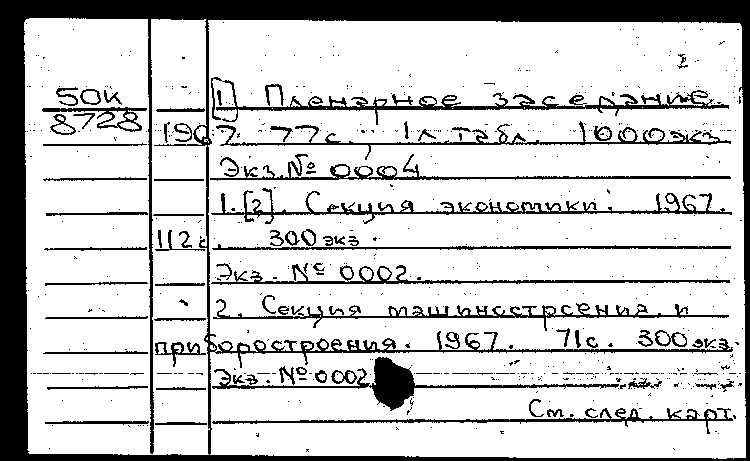 I
50К [1] Пленарное заседание
8728 1967. 77с.; 1л. табл. 1000экз
Экз. № 0004
1.[2]. Секция экономики. 1967.
112с. 300 экз.
Экз. № 0002.
2. Секция машиностроения и
приборостроения. 1967. 71с. 300 экз.
Экз. № 0002
См. след. карт.